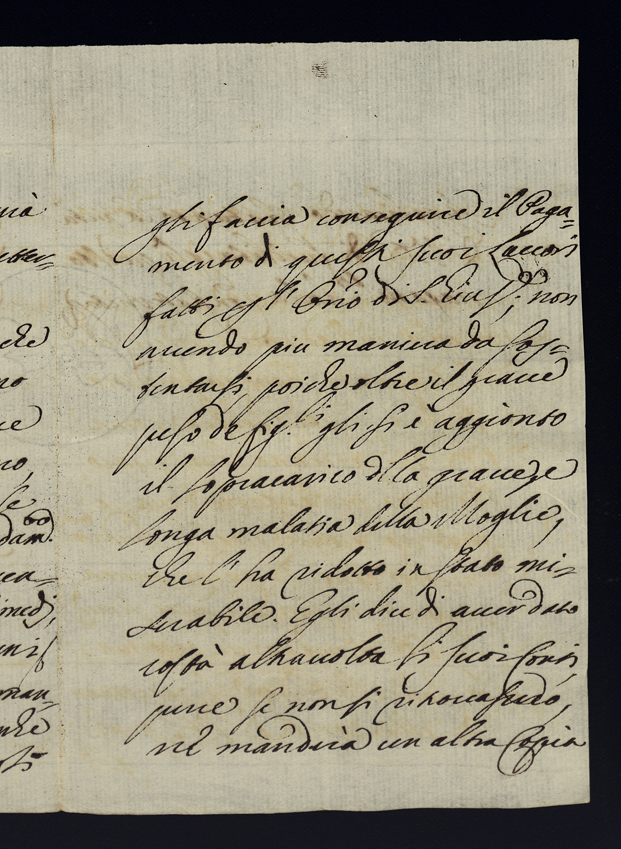 gli faccia conseguire il Paga=
mento di questi suoi Lavori
fatti di S. non
avendo piu maniera da sos=
tentarsi, poiche oltre il grave
peso de fig.li gli si è aggionto
il sopracarico dlla grave, e
longa malatia della Moglie,
che l'ha ridotto in stato mi=
serabile. Egli dice di aver dato
costà altravolta li suoi Conti,
pure se non si ritrovassero,
ne manderà un altra Copia